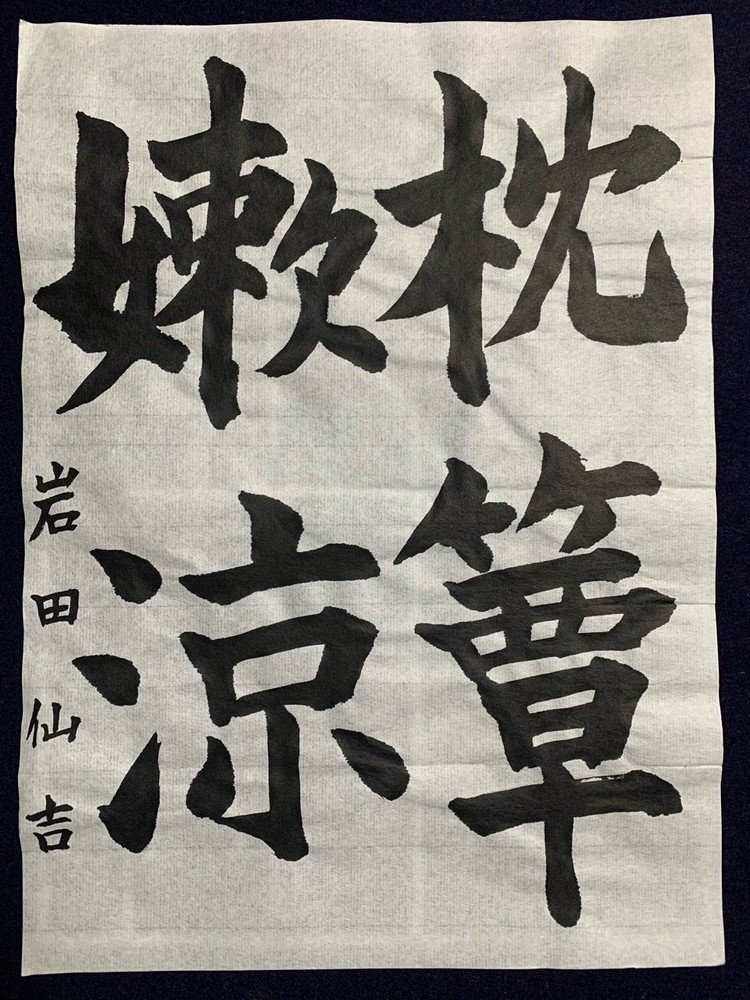 枕簟
嫩涼
岩田仙吉